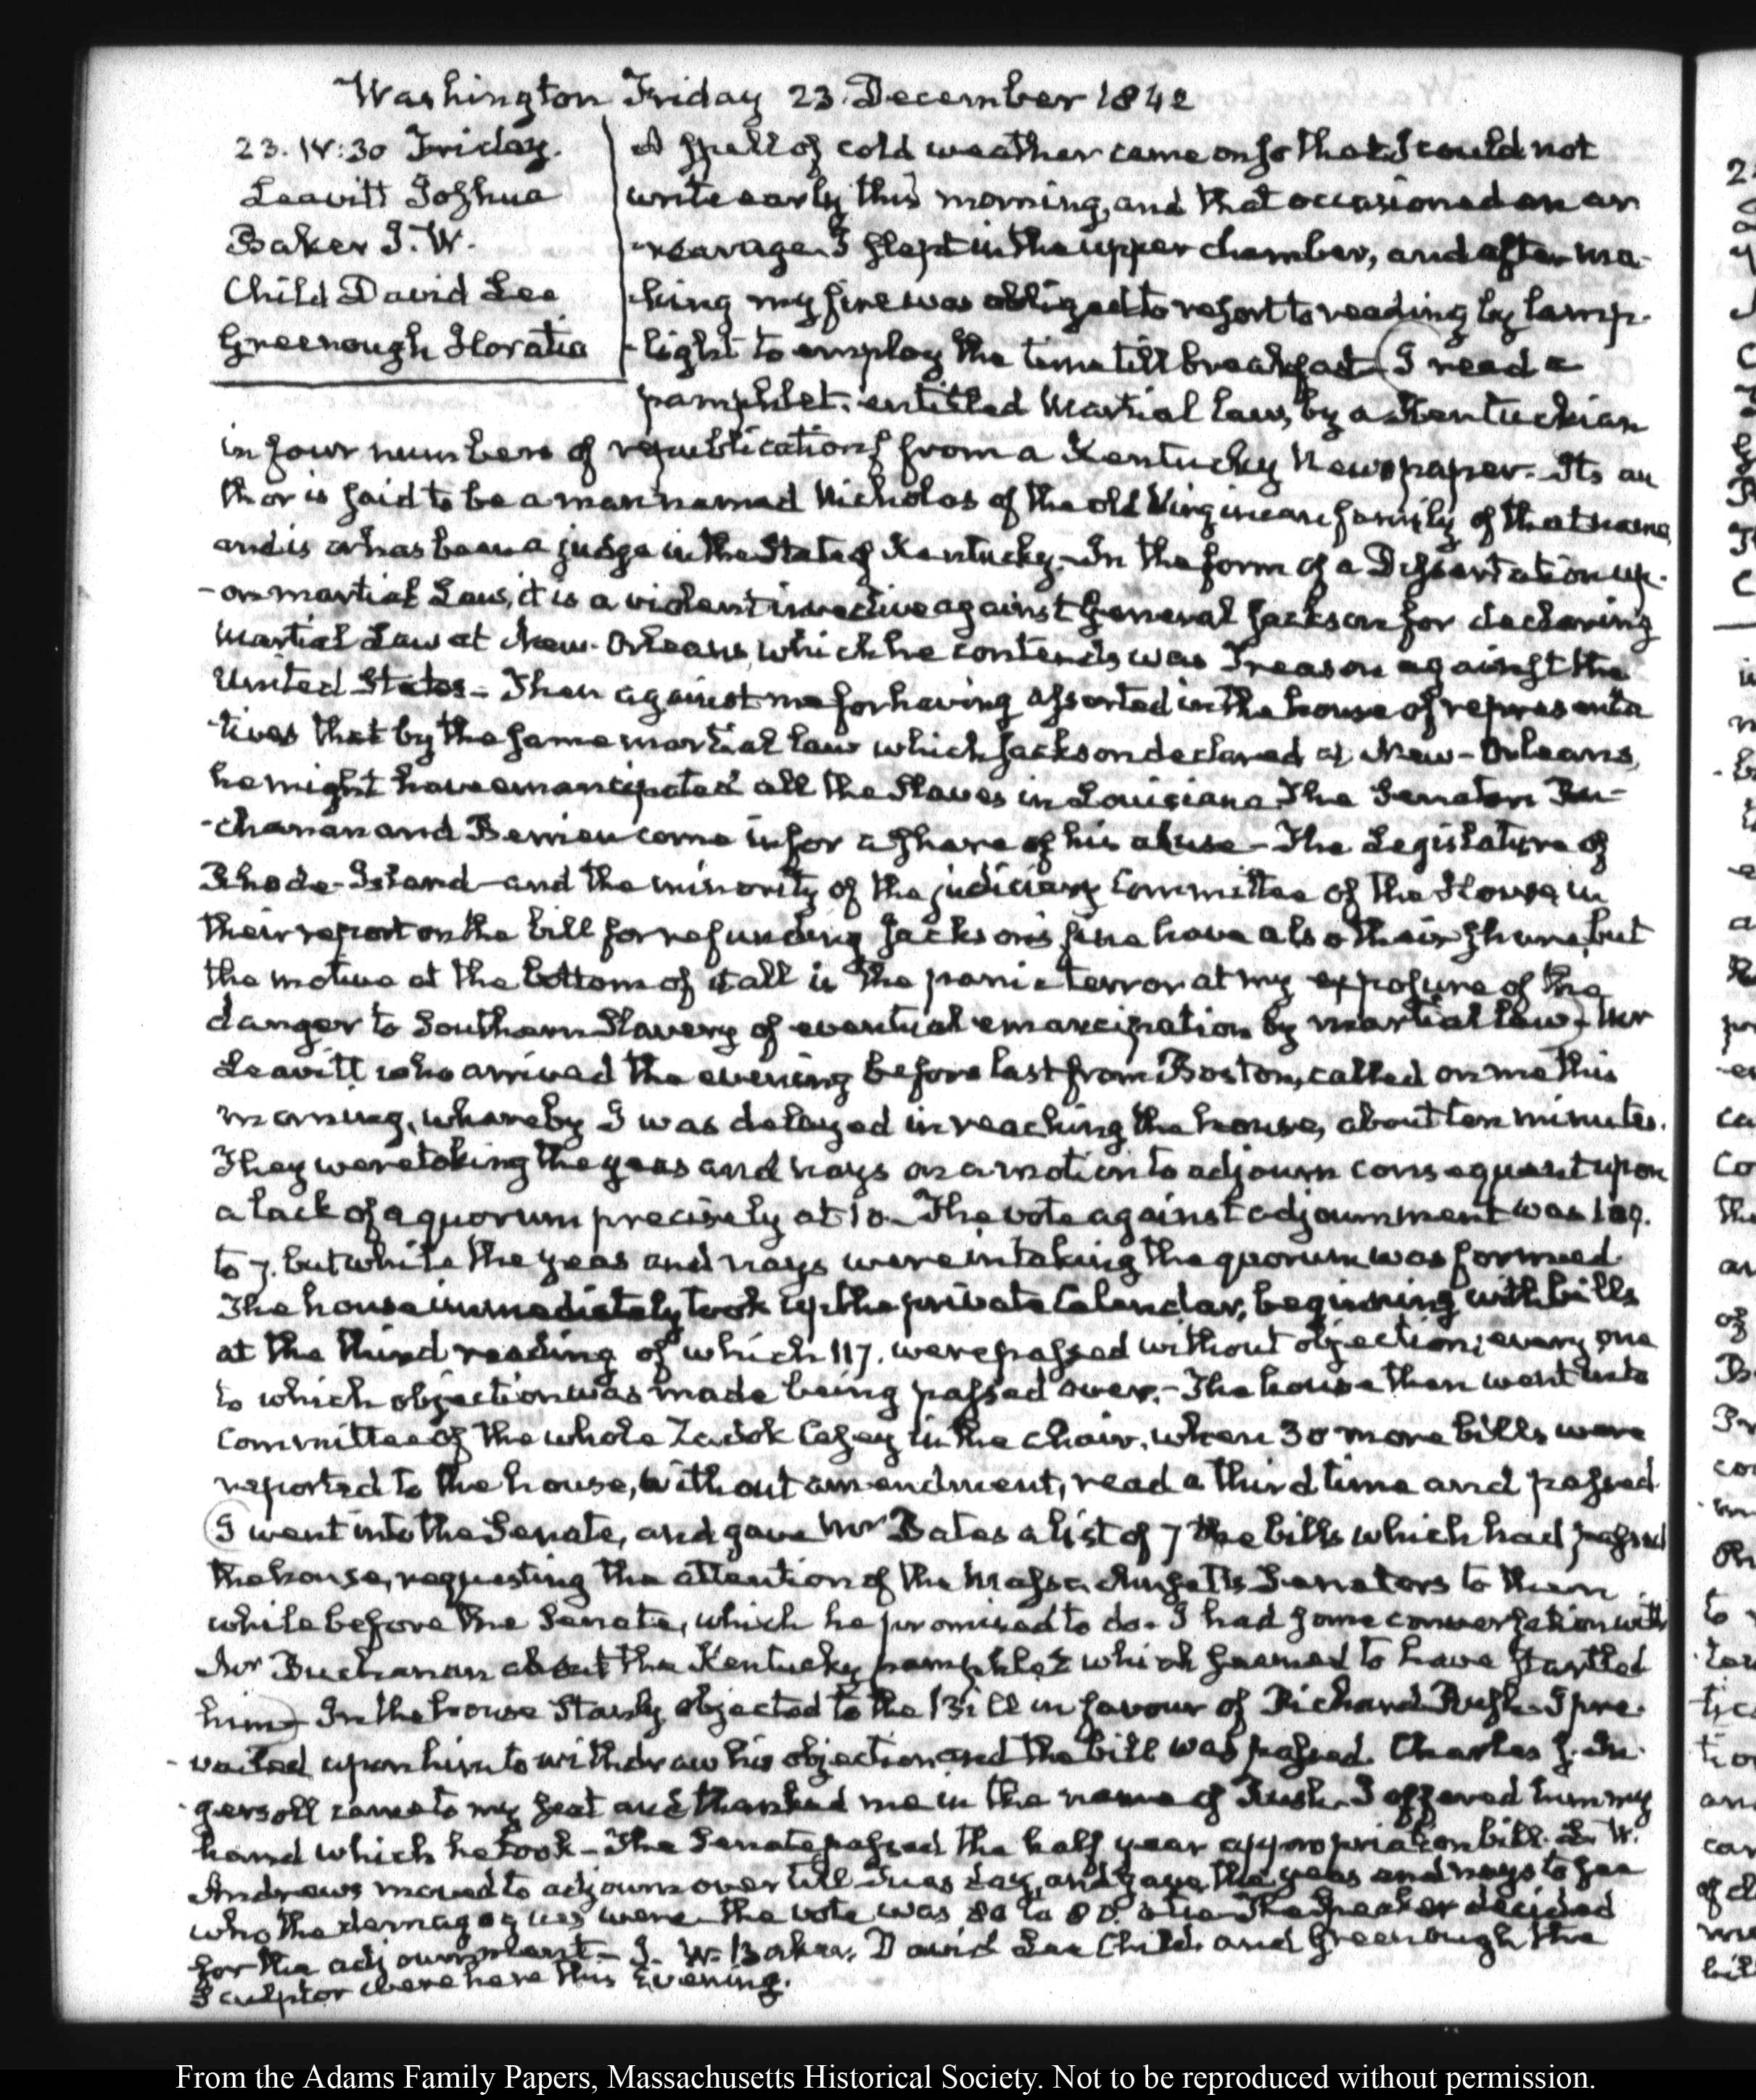 Washington Friday 23. December 1842
23. IV:30 Friday.
Leavitt Joshua
Baker J. W.
Child David Lee
Greenough Horatio
A spell of cold weather came on so that I could not
write early this morning, and that occasioned an ar
-rearage. I slept in the upper chamber, and after ma-
king my fire was obliged to resort to reading by lamp-
-light to employ the time till breakfast- I read a
pamphlet. entitled Martial Law, by a Kentuckian
in four numbers of republications from a Kentucky Newspaper. Its au
thor is said to be a man named Nicholas of the old Virginian family of that name,
and is or has been a judge in the State of Kentucky- In the form of a Dissertation up-
-on martial Law, it is a violent invective against General Jackson for declaring
Martial Law at New-Orleans, which he contends was Treason against the
United States- Then against me for having asserted in the house of representa
-tives that by the same martial law which Jackson declared at New-Orleans,
he might have emancipated all the Slaves in Louisiana The Senators Bu-
-chanan and Berrien come in for a share of his abuse- The Legislature of
Rhode-Island-and the minority of the judiciary Committee of the House, in
their report on the bill for refunding Jackson's fine have also their share, but
the motive at the bottom of it all is the panic terror at my exposure of the
danger to Southern Slavery of eventual emancipation by martial law- Mr
Leavitt who arrived the evening before last from Boston, called on me this
morning, whereby I was delayed in reaching the house, about ten minutes.
They were taking the yeas and nays on a motion to adjourn consequent upon
a lack of a quorum precisely at 10- The vote against adjournment was 109.
to 7. but while the yeas and nays were in taking the quorum was formed.
The house immediately took up the private Calendar, beginning with bills
at the third reading of which 117. were passed without objection; every one
to which objection was made being passed over.- The house then went into
Committee of the whole Zadok Casey in the chair, when 30 more bills were
reported to the house, without amendment, read a third time and passed.
I went into the Senate, and gave Mr Bates a list of 7 the bills which had passed
the house, requesting the attention of the Massachusetts Senators to them
while before the Senate, which he promised to do. I had some conversation with
Mr Buchanan about the Kentucky pamphlet which seemed to have startled
him- In the house Stanly objected to the Bill in favour of Richard Rush- I pre-
-vailed upon him to withdraw his objection, and the bill was passed. Charles J. In-
-gersoll came to my seat and thanked me in the name of Rush. I offered him my
hand which he took- The Senate passed the half year appropriation bill. L. W.
Andrews moved to adjourn over till Tuesday, and gave the yeas and nays to see
who the demagogues were- the vote was 80 to 80. a tie- The Speaker decided
for the adjournment- J. W. Baker, David Lee Child and Greenough the
Sculptor were here this Evening.
From the Adams Family Papers, Massachusetts Historical Society. Not to be reproduced without permission.